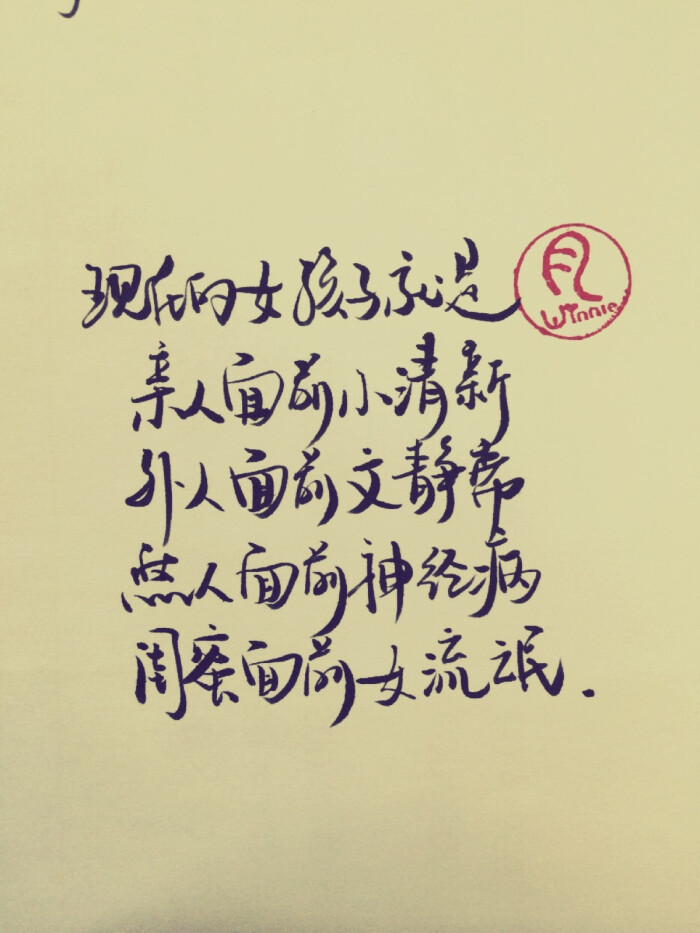 现代的女孩子就是
亲人面前小清新
外人面前文静帝
熟人面前神经病
闺蜜面前女流氓.
Winnie